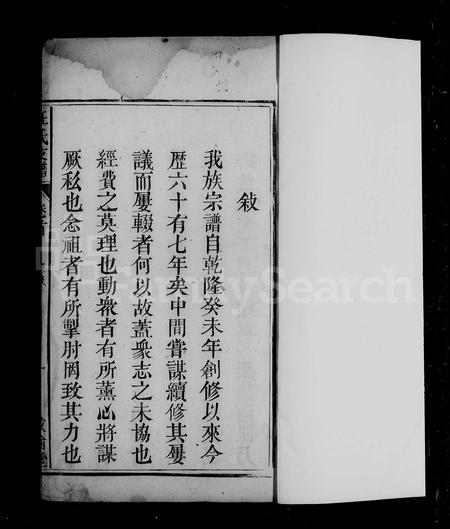 敘
我族宗譜自乾隆癸未年創修以來今
歴六十有七年矣中間嘗謀續修其屢
議而屢輟者何以故蓋衆志之未協也
經費之莫理也動衆者有所薰心將謀
厥私也念祖者有所掣肘罔致其力也
FamilySearch